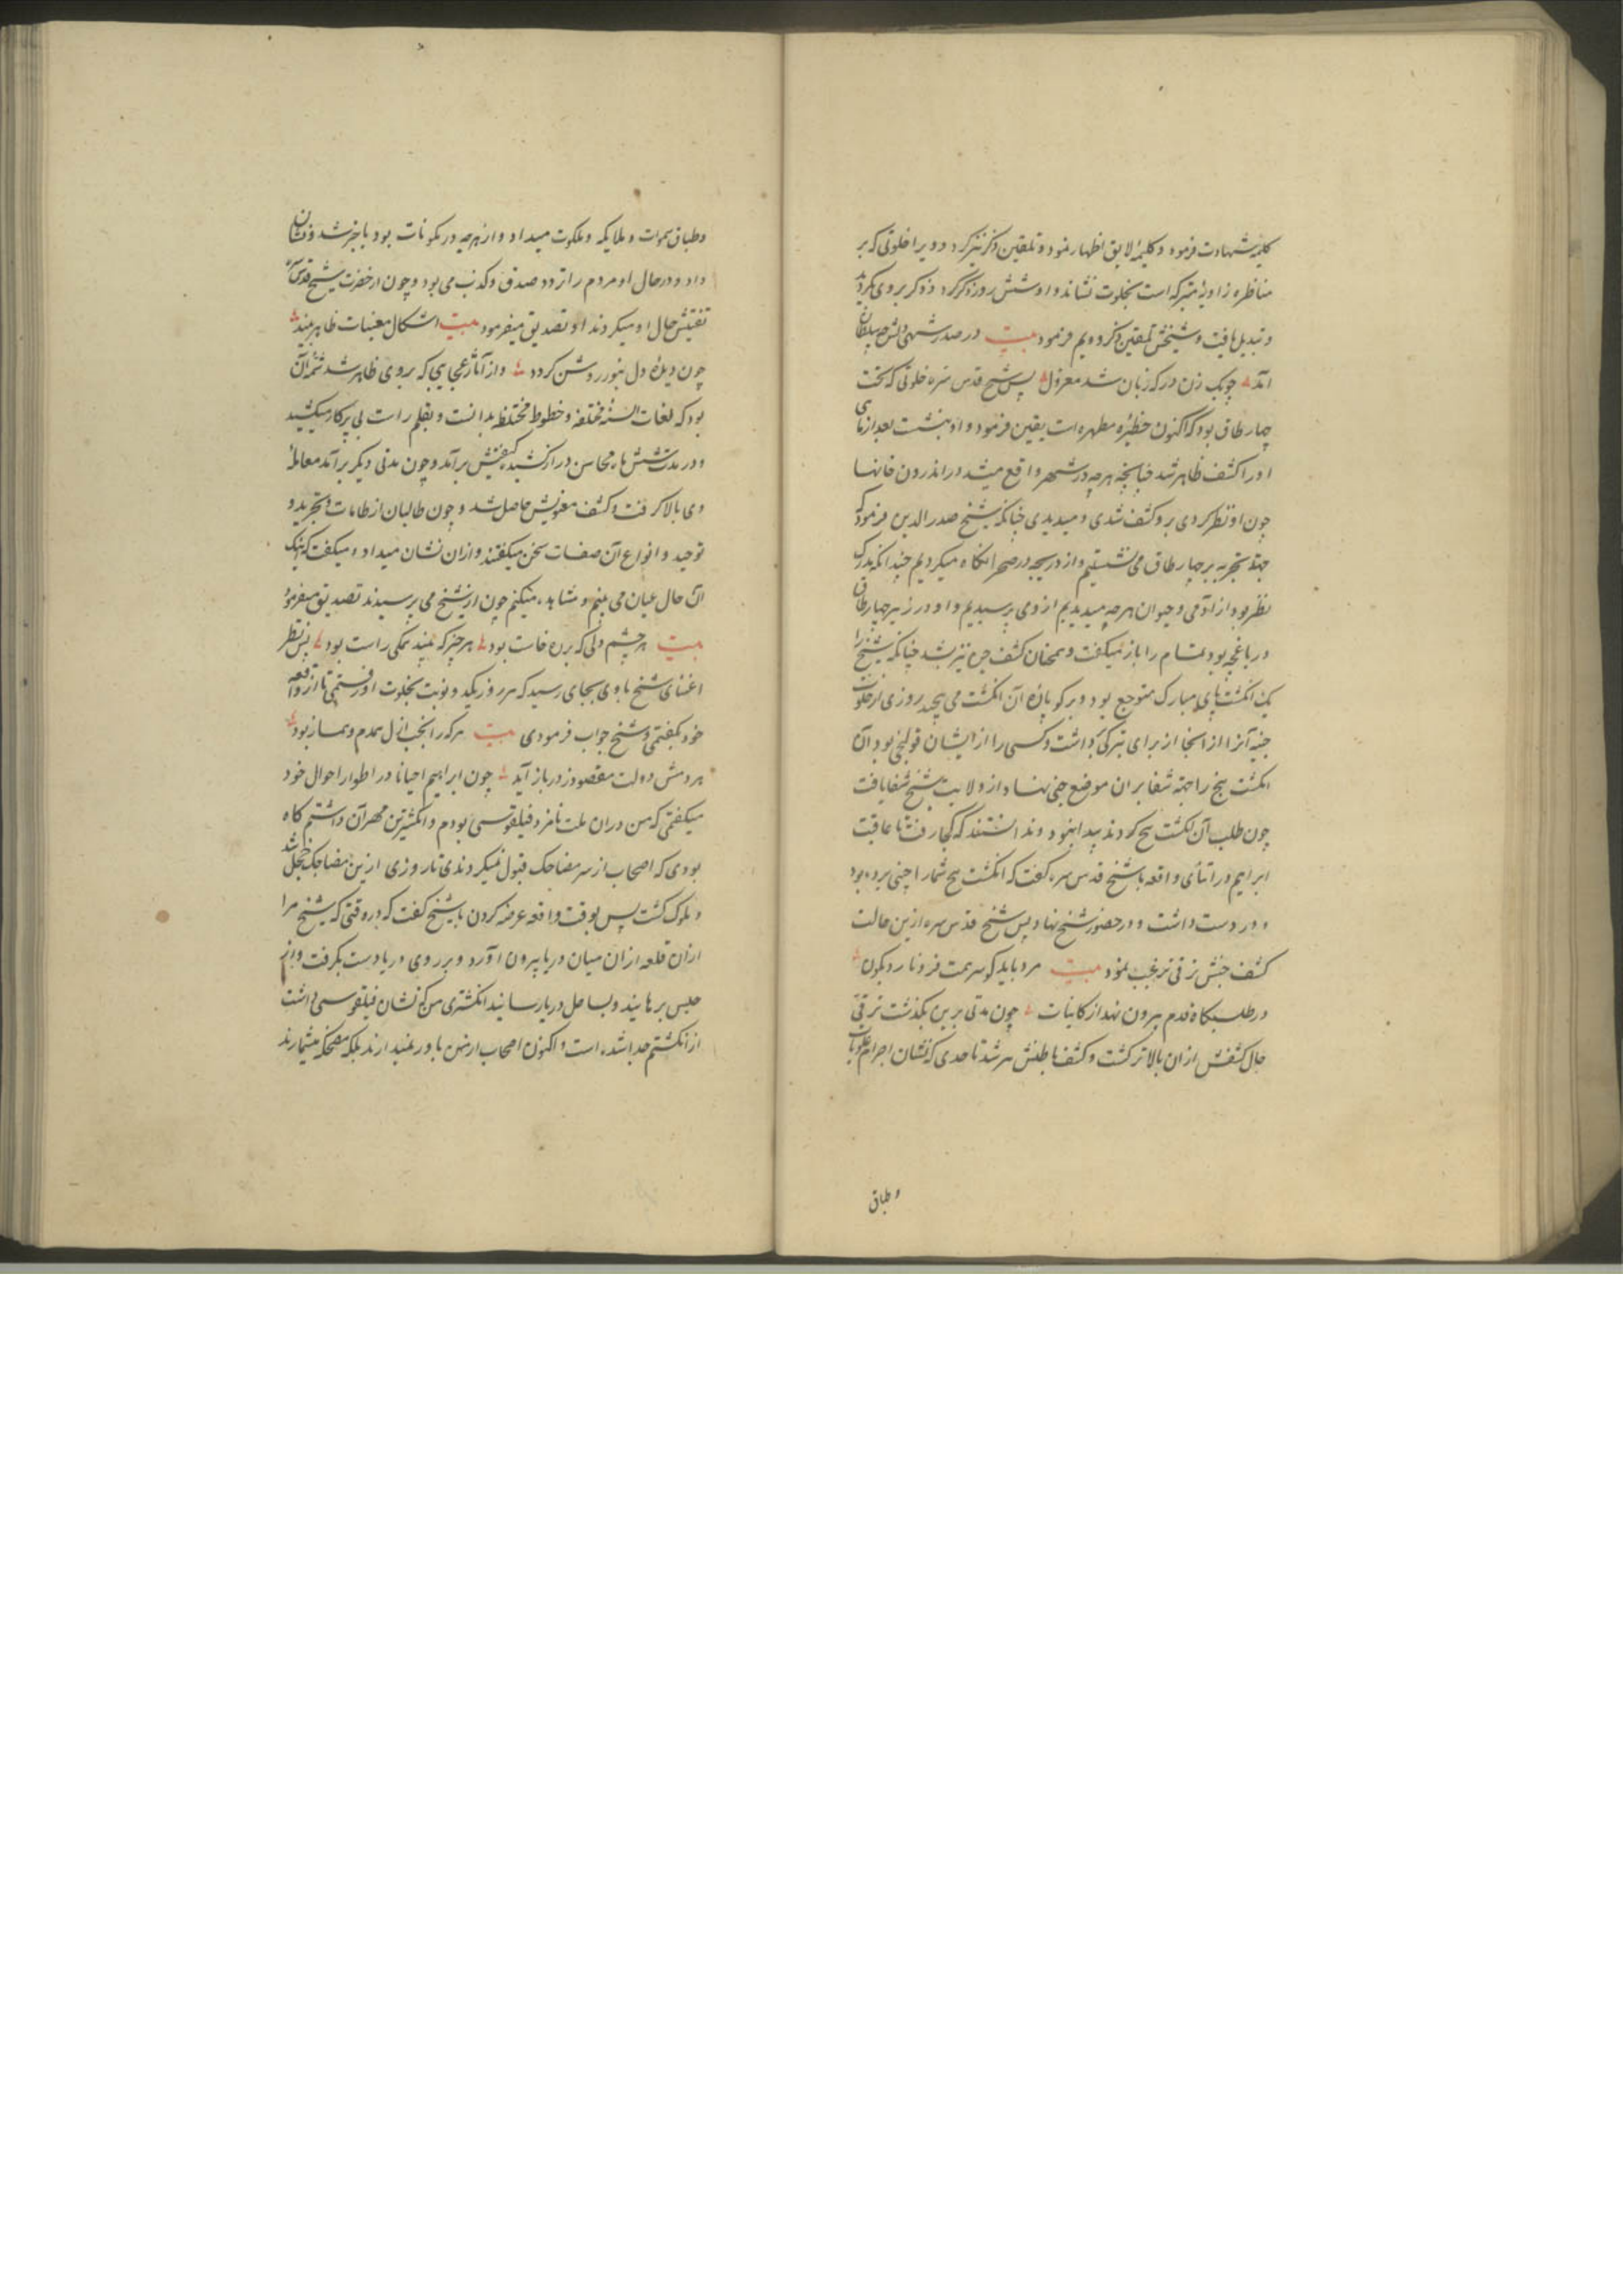 کلیمه شهادت فرمود و کلیمه لایق اظهار نمود و تلقین ذکر نیز کرد و ویرا خلوتی که بر
مناظره زاویه متبرکه است بخلوت نشاند و او شش روز ذکر کرد و ذکر بروی بگردید
و تبدیل یافت و شیخش تلقین ذکر دویم فرمود بیت در صدر شهی چو سلطان
آمد چوبک زن درکه زبان شد معزول پس شیخ قدس سره خلوتی که تحت
چهار طاق بود که اکنون حظیره مطهره است یقین فرمود و او بنشست بعد از مای
او را کشف ظاهر شد چنانچه هرچه در شهر واقع میشد در اندرون خانها
چون او نظر کردی برو کشف شدی و میدیدی چنانکه شیخ صدرالدین فرمود که
جهة تجربه بر چهار طاق می نشستیم و از دریچه در صحرا نگاه میکردیم چندانکه مدرک
نظر بود از آدمی و حیوان هرچه میدیدیم ازو می پرسیدیم و او در زیر چهار طاق
در باغچه بود تمام را باز میکفت و همچنان کشف جن نیز شد چنانکه شیخ را
یک انکشت پای مبارک متوجع بود و برکو پاره آن انکشت می پیچید روزی در خلوت
جنیه آنرا از انجا از برای تبرک برداشت و کسی را از ایشان قولنجی بود آن
انکشت پیچ را جهة شفا بر ان موضع جنی نهاد و از ولایت شیخ شفا یافت
چون طلب آن انکشت پیچ کردند پیدا نبود و ندانستند که کجا رفت تا عاقبت
ابراهیم در اثنای واقعه با شیخ قدس سره کفت که انکشت پیچ شما را جنی برده بود
و در دست داشت و در حضور شیخ نهاد پس شیخ قدس سره ازین حالت
کشف جنش ترقی ترغیب نمود بیت مرد باید کو سر همت فرو نارد بکون
در طلبکاه قدم بیرون نهد از کاینات چون مدتی برین بکذشت ترقی
حال کشفش از ان بالاتر کشت و کشف باطنش سر شد تا حدی که نشان اجرام علویات
و طباق
و طباق سموات و ملایکه و ملکوت میداد و از هرچه در مکونات بود با خبر شد و نشان
داد و در حال او مردم را تردد صدق و کذب می بود و چون از حضرت شیخ قدس سره
تفتیش حال او میکردند او تصدیق میفرمود بیت اشکال مغیبات ظاهر بیند
چون دیده دل بنور روشن کردد و از آثار عجایبی که بروی ظاهر شد ثمه آن
بود که لغات السنه مختلفه و خطوط مختلفه بدانست و بقلم راست بی پرکار میکشید
و در مدت شش ماه محاسن دراز کشیده کیفش برآمد و چون مدتی دیکر برآمد معامله
وی بالا کرفت و کشف معنویش حاصل شد و چون طالبان از طامات و تجرید و
توحید و انواع آن صفات سخن میکفتند و ازان نشان میداد و میکفت که اینک
آن حال عیان می بینم و مشاهده میکنم چون از شیخ می پرسیدند تصدیق میفرمود
بیت هر چشم دلی که برده خاست بود هر چیز که بیند بمکی راست بود پس نظر
اعتنای شیخ با وی بجای رسید که هر روز یکدو نوبت بخلوت او رفتی تا از واقعه
خود بکفتی و شیخ جواب فرمودی بیت هرکه را بخت ازل همدم و همساز بود
هر دمش دولت مقصود ز در باز آید چون ابراهیم احیانا در اطوار احوال خود
میکفتی که من دران ملت نامزد فیلقوسی بودم و انکشترین مهر آن داشتم کاه
بودی که اصحاب از سر مضاحک قبول نمیکردندی تا روزی ازین مضاحک خجل شد
و ملوک کشت پس بوقت واقعه عرضه کردن با شیخ کفت که در وقتی که شیخ مرا
ازان قلعه ازان میان دریا بیرون آورد و بر روی دریا دست بکرفت و از
حبس برهانید و بساحل دریا رسانید انکشتری من که نشان فیلقوسی داشت
از انکشتم جدا شده است و اکنون اصحاب از من باور نمیدارند بلکه مضحکه میشمارند